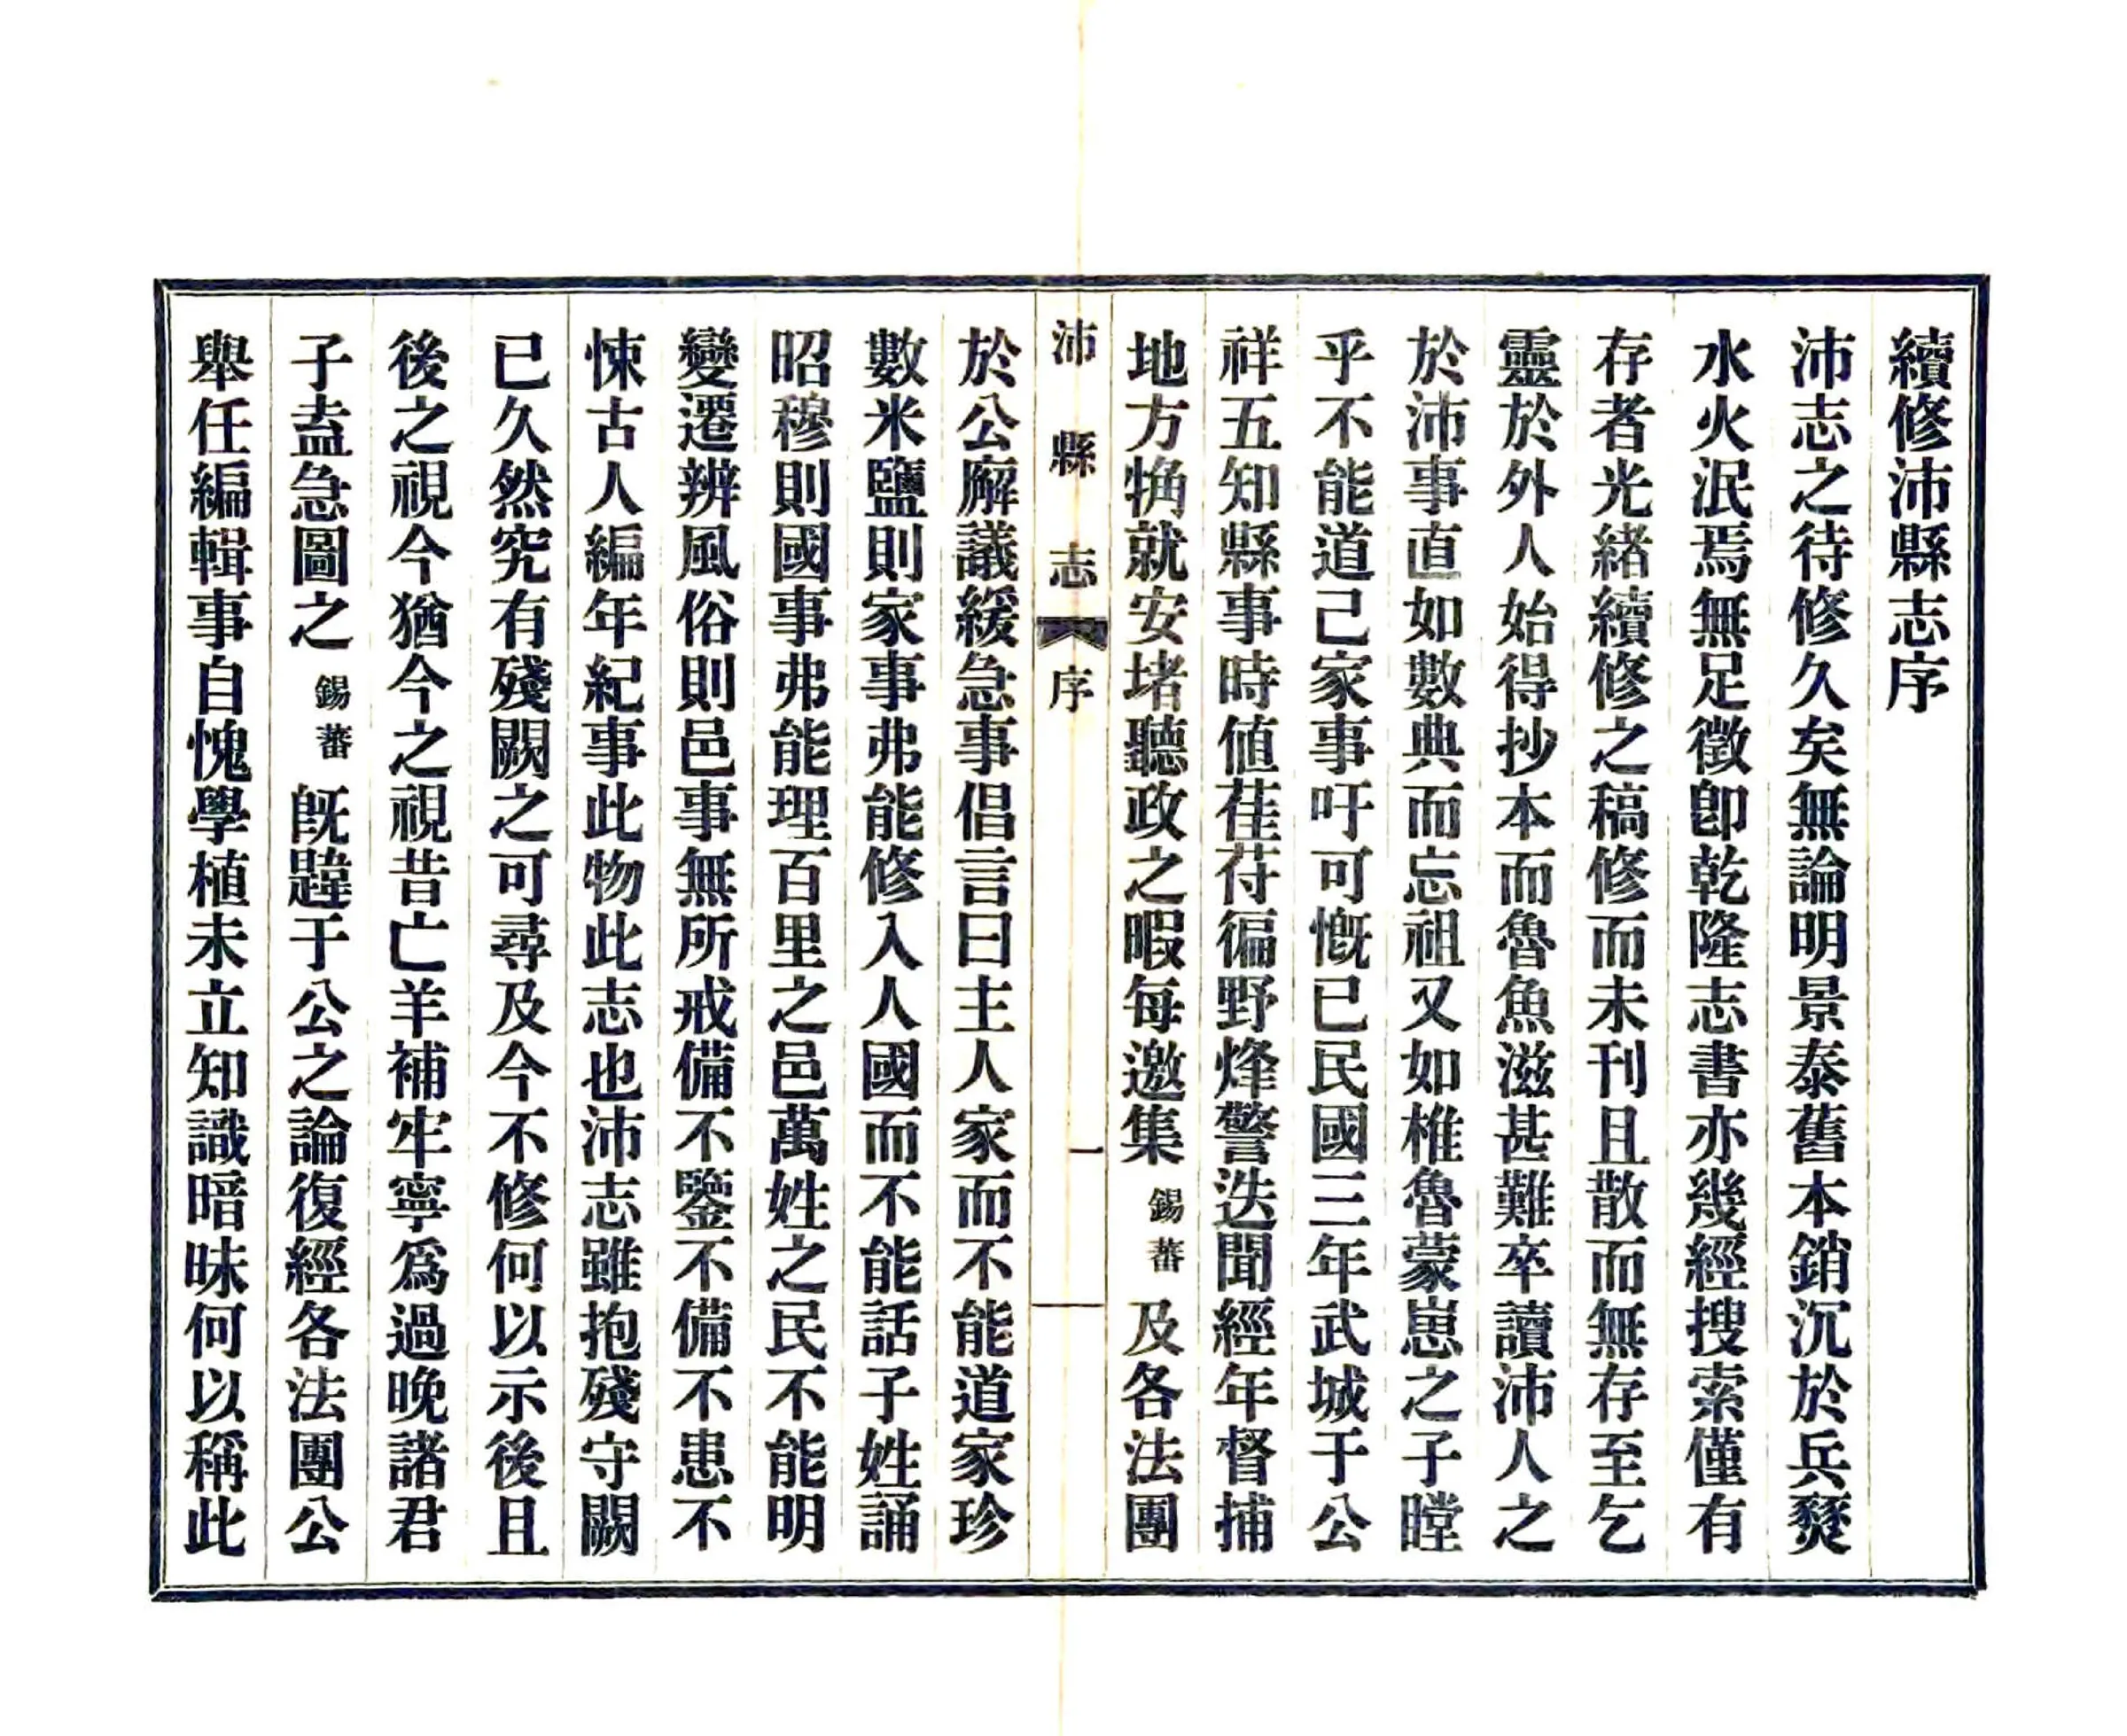 續修沛縣志序
沛志之待修久矣無論明景泰舊本銷沉於兵燹
水火泯焉無足徵卽乾隆志書亦幾經搜索僅有
存者光緒續修之稿修而未刊且散而無存至乞
靈於外人始得抄本而魯魚滋甚難卒讀沛人之
於沛事直如數典而忘祖又如椎魯蒙崽之子瞠
乎不能道己家事吁可慨已民國三年武城于公
祥五知縣事時値萑苻徧野烽警迭聞經年督捕
地方觕就安堵聽政之暇每邀集錫蕃及各法團
沛縣志 序 一
於公廨議緩急事倡言曰主人家而不能道家珍
數米鹽則家事弗能修入人國而不能話子姓誦
昭穆則國事弗能理百里之邑萬姓之民不能明
變遷辨風俗則邑事無所戒備不鑒不備不患不
悚古人編年紀事此物此志也沛志雖抱殘守闕
已久然究有殘闕之可尋及今不修何以示後且
後之視今猶今之視昔亡羊補牢寧爲過晚諸君
子盍急圖之錫蕃旣韙于公之論復經各法團公
舉任編輯事自愧學植未立知識暗昧何以稱此